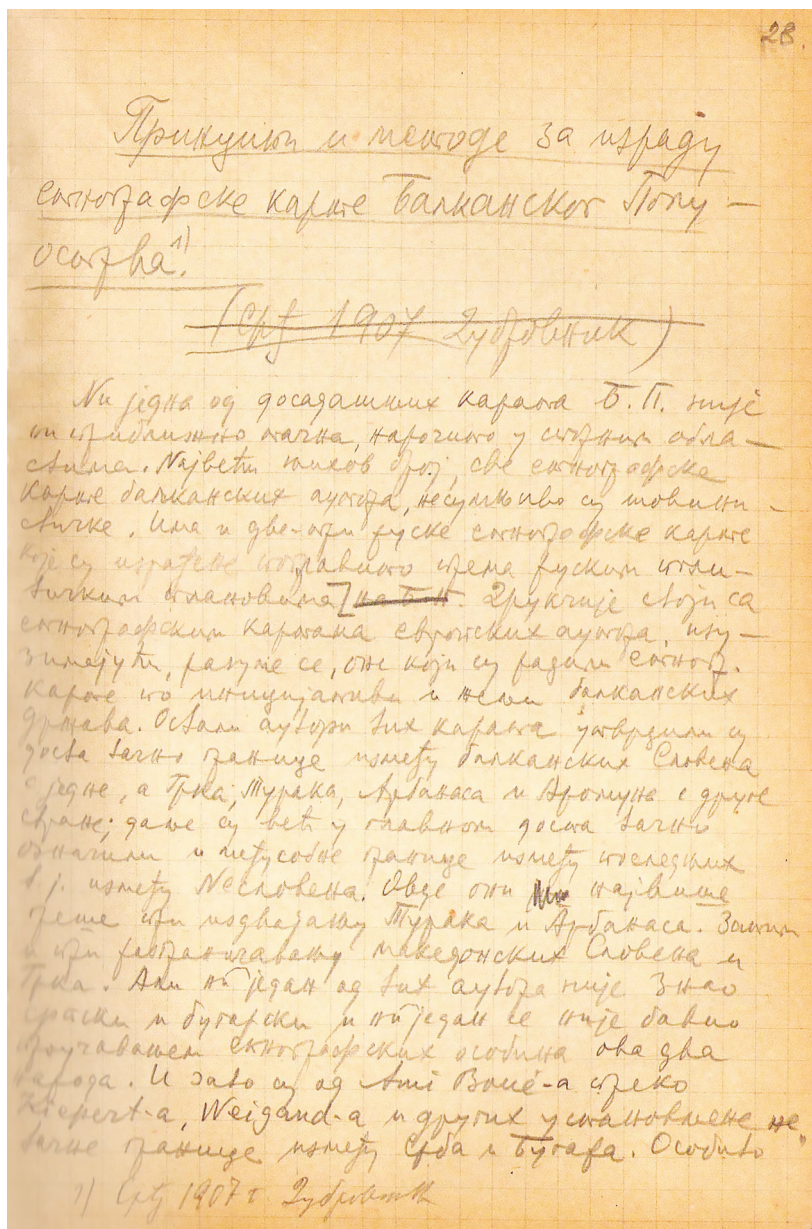 28.
Принципи и методе за израду
етнографске карте Балканског Полу-
острва.¹⁾
(Срђ 1907 Дубровник)
Ни једна од досадашњих карата Б. П. није
ни приближно тачна, нарочито у спорним обла-
стима. Највећи њихов број, све етнографске
карте балканских аутора, несумњиво су шовини-
стичке. Има и две-три руске етнографске карте
које су израђене поглавито према руским поли-
тичким плановима [на Б.П. Друкчије стоји са
етнографским картама европских аутора, изу-
зимајући, разуме се, оне који су радили етногр.
карте по иницијативи и жељи балканских
држава. Остали аутори тих карата утврдили су
доста тачно границе између балканских Словена
с једне, а Грка, Турака, Арбанаса и Аромуна с друге
стране; даље су већ у главном доста тачно
означили и међусобне границе између последњих
т. ј. између Несловена. Овде они највише
греше при издвајању Турака и Арбанаса. Затим
и при разграничавању македонских Словена и
Грка. Али ни један од тих аутора није знао
српски и бугарски и ни један се није бавио
проучавањем етнографских особина ова два
народа. И зато су од Ami Boué-a преко
Kiepert-a, Weigand-a и других установљене не-
тачне границе између Срба и Бугара. Особито
1) Срђ 1907 г. Дубровник